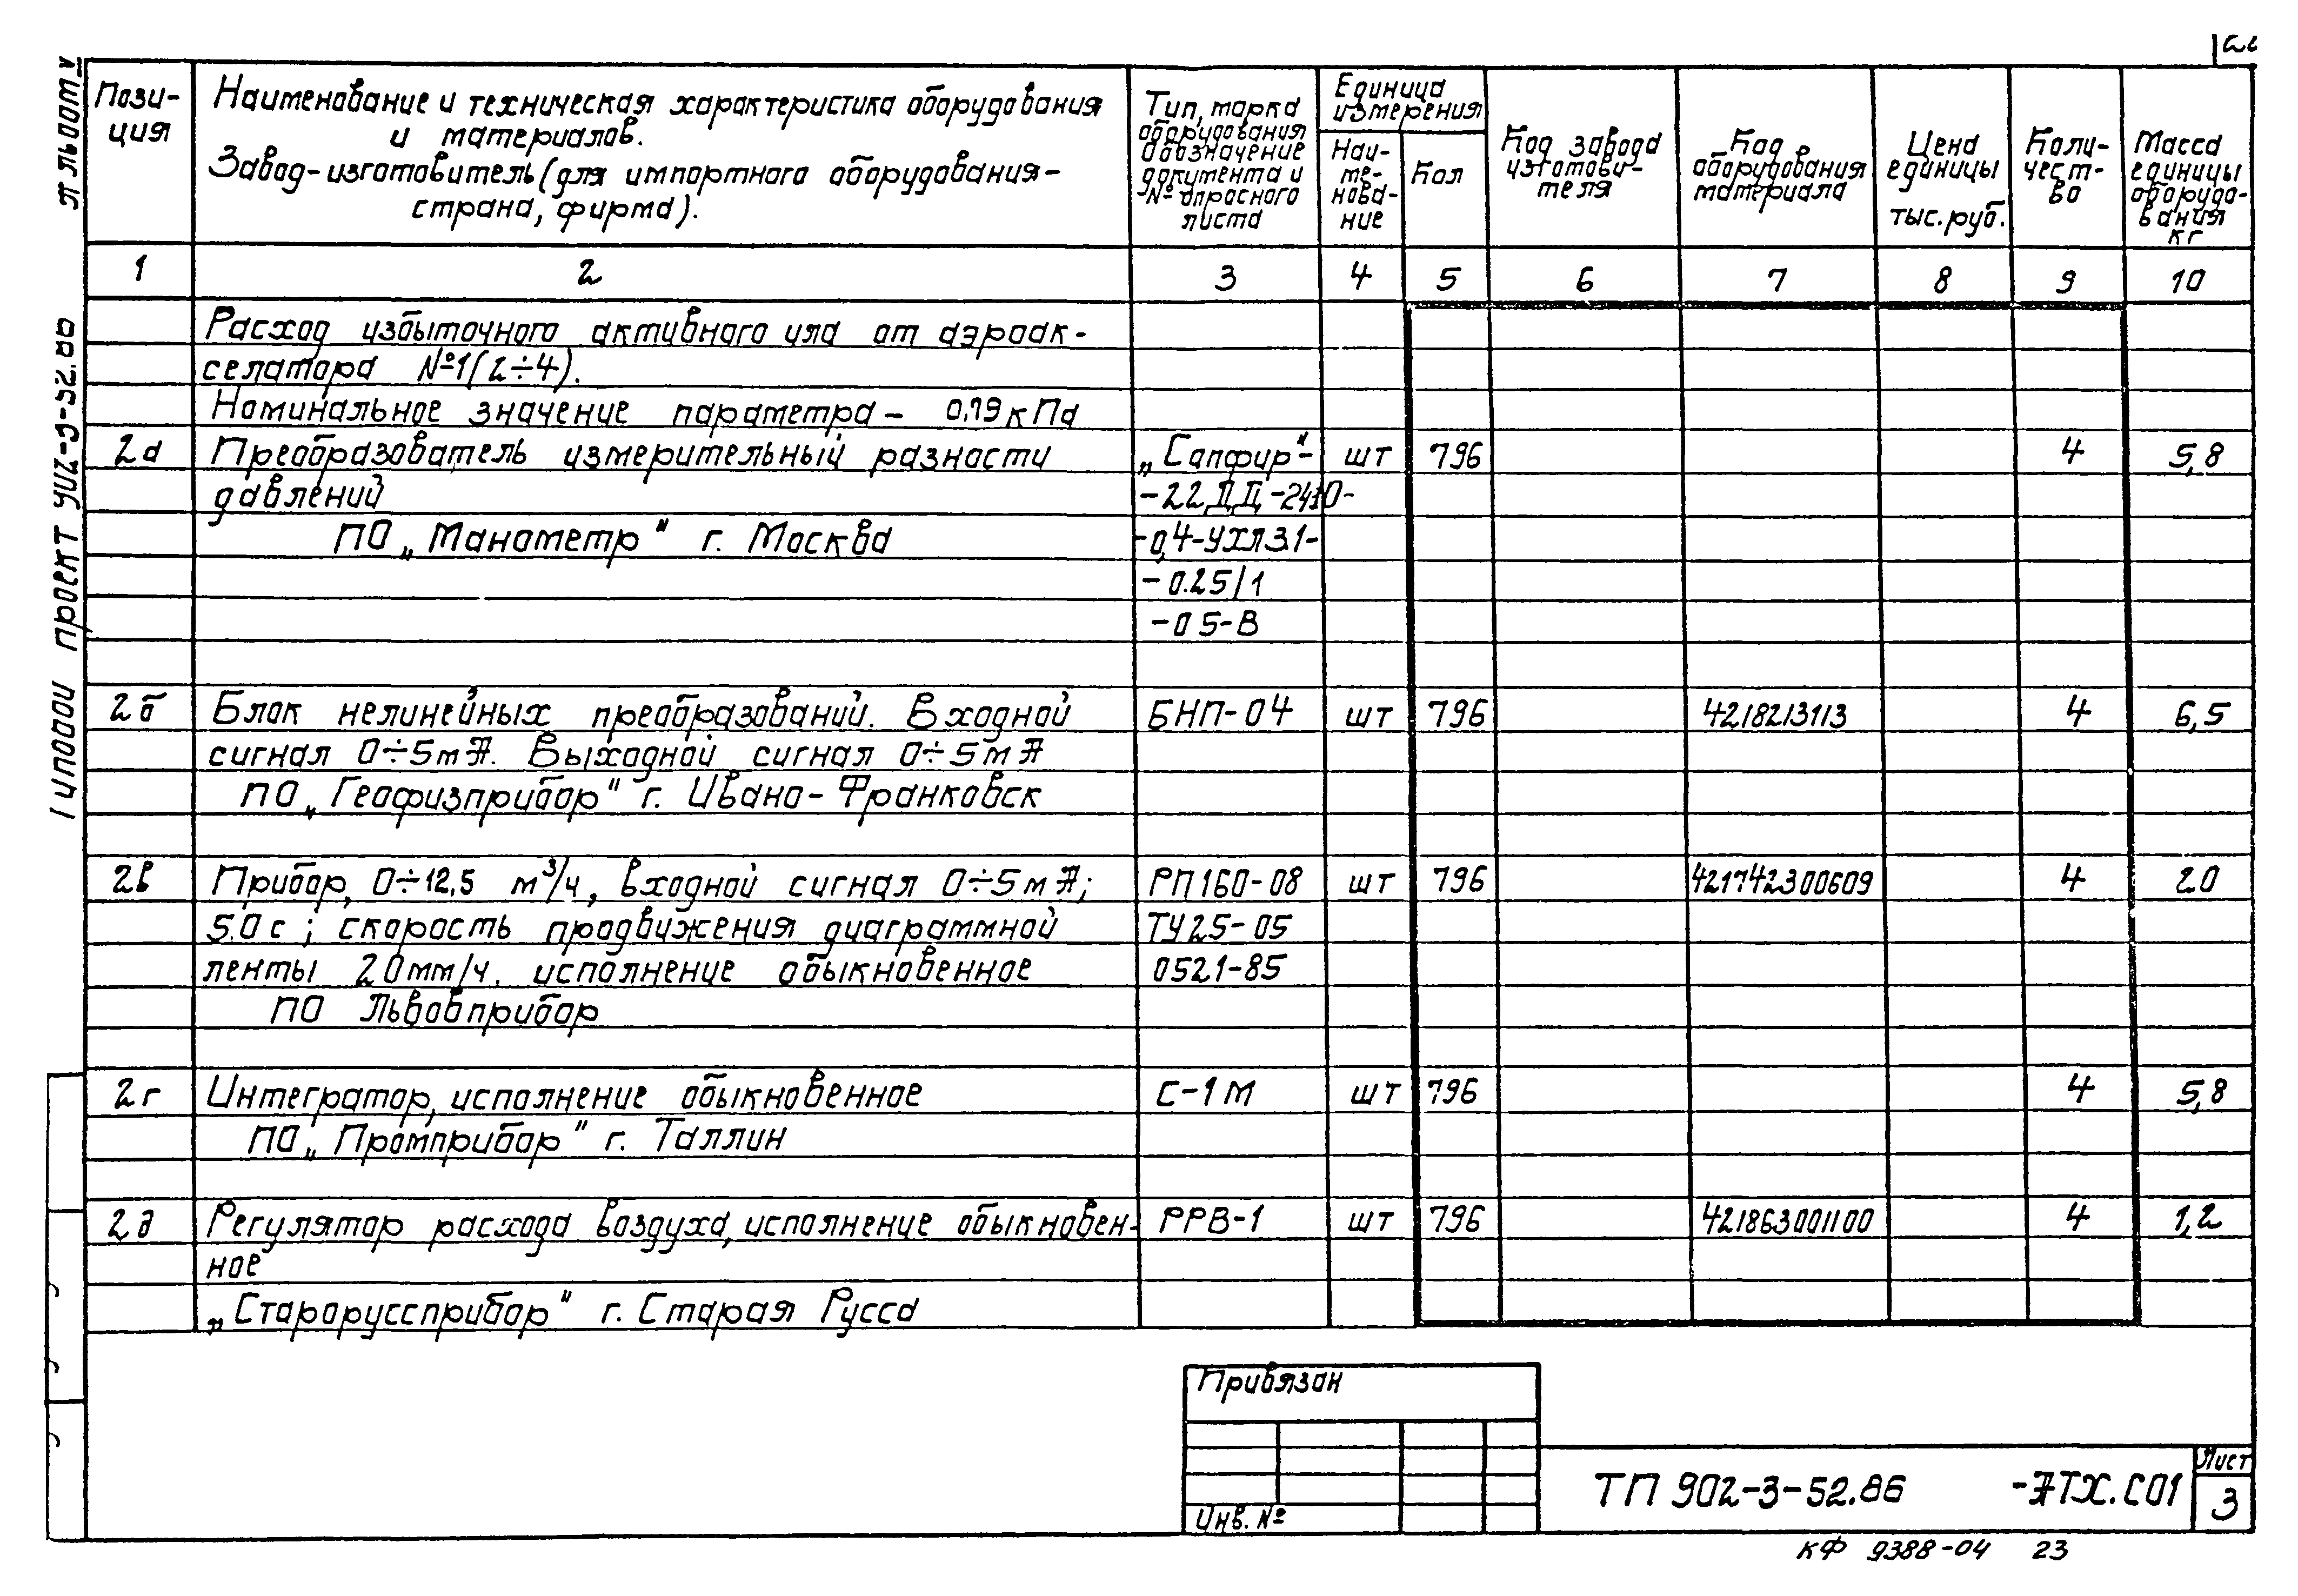 Пози-
ция
Наименование и техническая характеристика оборудования
и материалов.
Завод-изготовитель (для импортного оборудования-
страна, фирма).
Тип, марка
оборудования
Обозначение
документа и
№ опросного
листа
Единица
измерения
Наи-
ме-
нова-
ние
Код
Код завода
изготови-
теля
Код
оборудования
материала
Цена
единицы
тыс. руб.
Коли-
чест-
во
Масса
единицы
оборудо-
вания
кг
1 2 3 4 5 6 7 8 9 10
Расход избыточного активного ила от аэроак-
селатора №1(2÷4).
Номинальное значение параметра – 0,19 кПа
2а Преобразователь измерительный разности „Сапфир"- шт 796 4 5,8
давлений -22ДД-2410-
ПО „Манометр" г. Москва -0,4-УХЛ3.1-
-0.25/1
-05-В
2б Блок нелинейных преобразований. Входной БНП-04 шт 796 4218213113 4 6,5
сигнал 0÷5мА. Выходной сигнал 0÷5мА
ПО „Геофизприбор" г. Ивано-Франковск
2в Прибор, 0÷12,5 м³/ч, входной сигнал 0÷5мА; РП160-08 шт 796 421742300609 4 20
5.0с; скорость продвижения диаграммной ТУ25-05
ленты 20мм/ч. исполнение обыкновенное 0521-85
ПО Львовприбор
2г Интегратор, исполнение обыкновенное С-1М шт 796 4 5,8
ПО „Промприбор" г. Таллин
2д Регулятор расхода воздуха, исполнение обыкновен- РРВ-1 шт 796 421863001100 4 1,2
ное
„Старорусприбор" г. Старая Русса
Привязан
Инв. №
ТП 902-3-52.86 -АТХ.С01
Лист
3
КФ 9388-04 23
Типовой проект 902-3-52.86
Альбом V